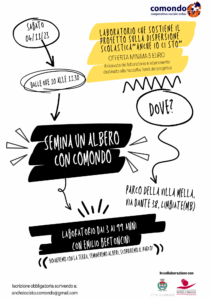 comondo
cooperativa sociale onlus
SABATO
04/11/23
LABORATORIO CHE SOSTIENE IL
PROGETTO SULLA DISPERSIONE
SCOLASTICA "ANCHE IO CI STO"
OFFERTA MINIMA 5 EURO
DALLE ORE 10 ALLE 11.30
DOVE?
SEMINA UN ALBERO
CON COMONDO
PARCO DELLA VILLA MELLA,
VIA DANTE 38, LIMBIATE(MB)
LABORATORIO DAI 3 AI 99 ANNI
CON EMILIO BERTONCINI
In collaborazione con:
Iscrizione obbligatoria scrivendo a:
ancheiocisto.comondo@gmail.com